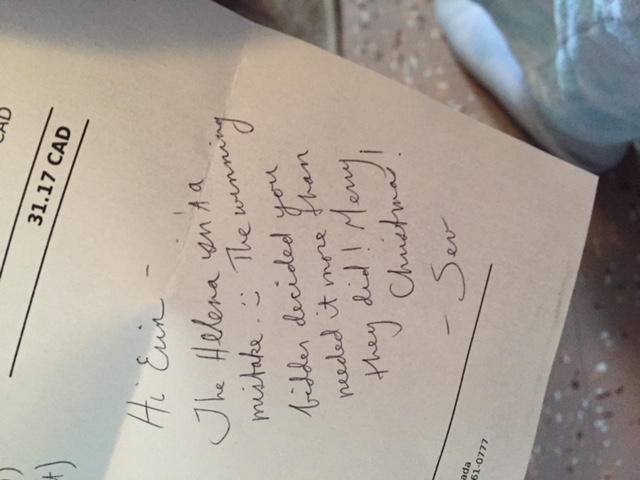 CAD
31.17 CAD
Hi Erin -
The Helena isn't a
mistake. :) The winning
bidder decided you
needed it more than
they did! Merry
Christmas!
- Sev
ada
61-0777